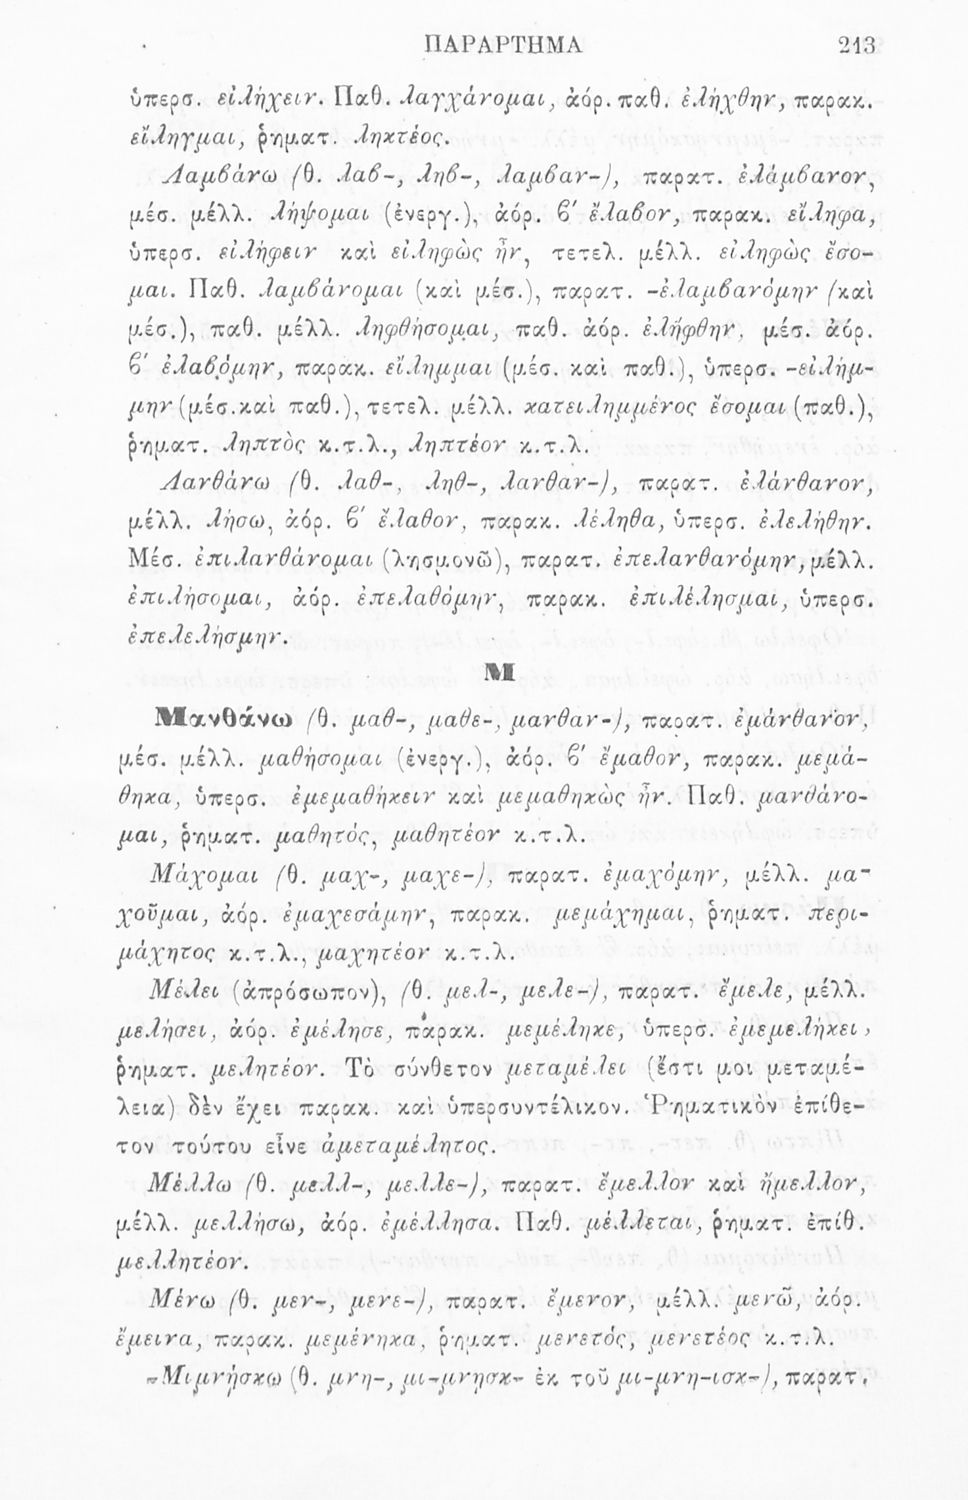 ΠΑΡΑΡΤΗΜΑ 213
ὑπερσ. εἰλήχειν. Παθ. λαγχάνομαι, ἀόρ. παθ. ἐλήχθην, παρακ.
εἴληγμαι, ῥηματ. ληκτέος.
Λαμβάνω (θ. λαβ-, ληβ-, λαμβαν-), παρατ. ἐλάμβανον,
μέσ. μέλλ. λήψομαι (ἐνεργ.), ἀόρ. β′ ἔλαβον, παρακ. εἴληφα,
ὑπερσ. εἰλήφειν καὶ εἰληφὼς ἦν, τετελ. μέλλ. εἰληφὼς ἔσο-
μαι. Παθ. λαμβάνομαι (καὶ μέσ.), παρατ. -ἐλαμβανόμην (καὶ
μέσ.), παθ. μέλλ. ληφθήσομαι, παθ. ἀόρ. ἐλήφθην, μέσ. ἀόρ.
β′ ἐλαβόμην, παρακ. εἴλημμαι (μέσ. καὶ παθ.), ὑπερσ. -εἰλήμ-
μην (μέσ. καὶ παθ.), τετελ. μέλλ. κατειλημμένος ἔσομαι (παθ.),
ῥηματ. ληπτὸς κ.τ.λ., ληπτέον κ.τ.λ.
Λανθάνω (θ. λαθ-, ληθ-, λανθαν-), παρατ. ἐλάνθανον,
μέλλ. λήσω, ἀόρ. β′ ἔλαθον, παρακ. λέληθα, ὑπερσ. ἐλελήθην.
Μέσ. ἐπιλανθάνομαι (λησμονῶ), παρατ. ἐπελανθανόμην, μέλλ.
ἐπιλήσομαι, ἀόρ. ἐπελαθόμην, παρακ. ἐπιλέλησμαι, ὑπερσ.
ἐπελελήσμην.
Μ
Μανθάνω (θ. μαθ-, μαθε-, μανθαν-), παρατ. ἐμάνθανον,
μέσ. μέλλ. μαθήσομαι (ἐνεργ.), ἀόρ. β′ ἔμαθον, παρακ. μεμά-
θηκα, ὑπερσ. ἐμεμαθήκειν καὶ μεμαθηκὼς ἦν. Παθ. μανθάνο-
μαι, ῥηματ. μαθητός, μαθητέον κ.τ.λ.
Μάχομαι (θ. μαχ-, μαχε-), παρατ. ἐμαχόμην, μέλλ. μα-
χοῦμαι, ἀόρ. ἐμαχεσάμην, παρακ. μεμάχημαι, ῥηματ. περι-
μάχητος κ.τ.λ., μαχητέον κ.τ.λ.
Μέλει (ἀπρόσωπον), (θ. μελ-, μελε-), παρατ. ἔμελε, μέλλ.
μελήσει, ἀόρ. ἐμέλησε, παρακ. μεμέληκε, ὑπερσ. ἐμεμελήκει,
ῥηματ. μελητέον. Τὸ σύνθετον μεταμέλει (ἔστι μοι μεταμέ-
λεια) δὲν ἔχει παρακ. καὶ ὑπερσυντέλικον. Ῥηματικὸν ἐπίθε-
τον τούτου εἶνε ἀμεταμέλητος.
Μέλλω (θ. μελλ-, μελλε-), παρατ. ἔμελλον καὶ ἤμελλον,
μέλλ. μελλήσω, ἀόρ. ἐμέλλησα. Παθ. μέλλεται, ῥηματ. ἐπίθ.
μελλητέον.
Μένω (θ. μεν-, μενε-), παρατ. ἔμενον, μέλλ. μενῶ, ἀόρ.
ἔμεινα, παρακ. μεμένηκα, ῥηματ. μενετός, μενετέος κ.τ.λ.
-Μιμνήσκω (θ. μνη-, μι-μνησκ- ἐκ τοῦ μι-μνη-ισκ-), παρατ.